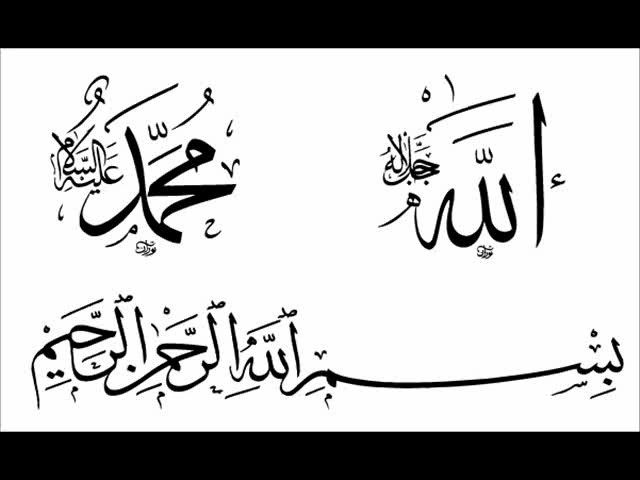 الله جل جلاله
محمد عليه السلام
بِسْمِ ٱللَّهِ ٱلرَّحْمٰنِ ٱلرَّحِيمِ